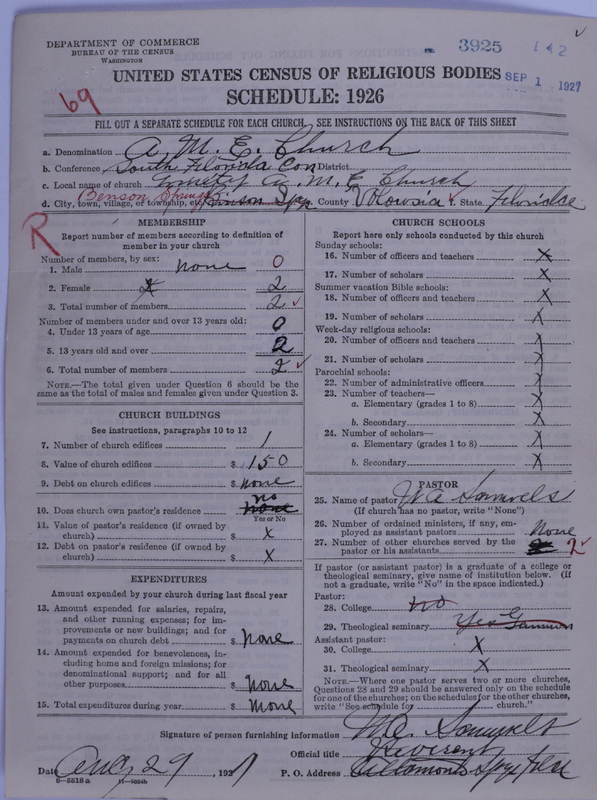 DEPARTMENT OF COMMERCE
BUREAU OF THE CENSUS
WASHINGTON
3925
142
SEP 1 1927
UNITED STATES CENSUS OF RELIGIOUS BODIES
SCHEDULE: 1926
69
FILL OUT A SEPARATE SCHEDULE FOR EACH CHURCH. SEE INSTRUCTIONS ON THE BACK OF THIS SHEET
a. Denomination A. M. E. Church
b. Conference South Florida Con District
c. Local name of church A. M. E Church
d. City, town, village, or township, etc. Benson Springs County Volowsia State
R
MEMBERSHIP
Report number of members according to definition of
member in your church
Number of members, by sex:
1. Male none 0
2. Female 2 2
3. Total number of members 2
Number of members under and over 13 years old:
4. Under 13 years of age 0
5. 13 years old and over 2
6. Total number of members 2
NOTE.—The total given under Question 6 should be the
same as the total of males and females given under Question 3.
CHURCH BUILDINGS
See instructions, paragraphs 10 to 12
7. Number of church edifices 1
8. Value of church edifices $ 150
9. Debt on church edifices $ none
10. Does church own pastor's residence no none
Yes or No
11. Value of pastor's residence (if owned by
church) $ X
12. Debt on pastor's residence (if owned by
church) $ X
EXPENDITURES
Amount expended by your church during last fiscal year
13. Amount expended for salaries, repairs,
and other running expenses; for im-
provements or new buildings; and for
payments on church debt $ none
14. Amount expended for benevolences, in-
cluding home and foreign missions; for
denominational support; and for all
other purposes $ none
15. Total expenditures during year $ none
CHURCH SCHOOLS
Report here only schools conducted by this church
Sunday schools:
16. Number of officers and teachers X
17. Number of scholars X
Summer vacation Bible schools:
18. Number of officers and teachers X
19. Number of scholars X
Week-day religious schools:
20. Number of officers and teachers X
21. Number of scholars X
Parochial schools:
22. Number of administrative officers X
23. Number of teachers—
a. Elementary (grades 1 to 8) X
b. Secondary X
24. Number of scholars—
a. Elementary (grades 1 to 8) X
b. Secondary X
PASTOR
25. Name of pastor W. A. Samuels
(If church has no pastor, write "None")
26. Number of ordained ministers, if any, em-
ployed as assistant pastors None
27. Number of other churches served by the
pastor or his assistants 2
If pastor (or assistant pastor) is a graduate of a college or
theological seminary, give name of institution below. (If
not a graduate, write "No" in the space indicated.)
Pastor:
28. College no
29. Theological seminary Yes Gammon
Assistant pastor:
30. College X
31. Theological seminary X
NOTE.—Where one pastor serves two or more churches,
Questions 28 and 29 should be answered only on the schedule
for one of the churches; on the schedules for the other churches,
write "See schedule for church."
Signature of person furnishing information W. A. Samuels
Official title
Date Aug 29, 1927
P. O. Address
8—5518 a